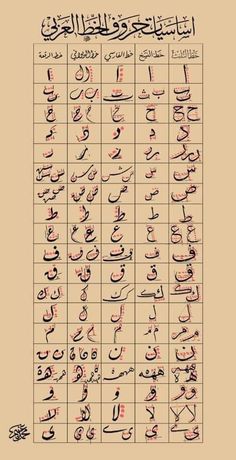 اساسيات حروف الخط العربي
خط الثلث خط النسخ خط الفارسي خط الديواني خط الرقعة
ا ا ا ا ا
ب ب ب ب ب
ح ح ح ح ح
د د د د د
ر ر ر ر ر
س س س س س
ص ص ص ص ص
ط ط ط ط ط
ع ع ع ع ع
ف ف ف ف ف
ق ق ق ق ق
ك ك ك ك ك
ل ل ل ل ل
م م م م م
ن ن ن ن ن
ه ه ه ه ه
و و و و و
لا لا لا لا لا
ي ي ي ي ي